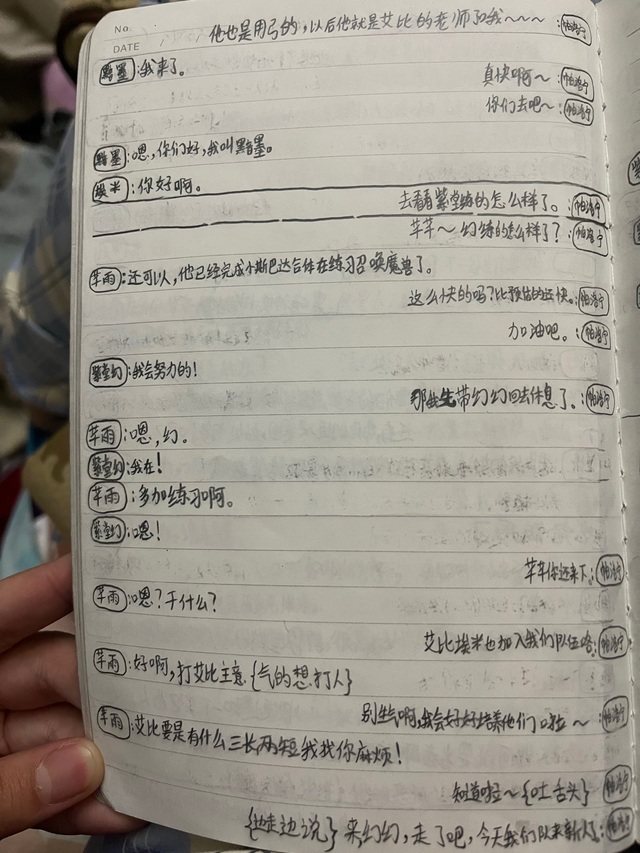 No.
DATE
他也是用弓的,以后他就是艾比的老师了哦~~~ :帕洛宁
黯墨:我来了。
真快啊~ :帕洛宁
你们去吧~ :帕洛宁
黯墨:嗯,你们好,我叫黯墨。
埃米:你好啊。
去看看紫堂练的怎么样了。:帕洛宁
芊芊~ 幻练的怎么样了? :帕洛宁
芊雨:还可以,他已经完成小斯巴达合体在练习召唤魔兽了。
这么快的吗?比预估的还快。:帕洛宁
加油吧。:帕洛宁
紫堂幻:我会努力的!
那先生带幻幻回去休息了。:帕洛宁
芊雨:嗯,幻。
紫堂幻:我在!
芊雨:多加练习啊。
紫堂幻:嗯!
芊芊你过来下:帕洛宁
芊雨:嗯?干什么?
艾比埃米也加入我们队伍哈:帕洛宁
芊雨:好啊,打艾比主意{气的想打人}
别生气啊,我会好好培养他们啦~ :帕洛宁
芊雨:艾比要是有什么三长两短我找你麻烦!
知道啦~{吐舌头} :帕洛宁
{边走边说} 来幻幻,走了吧,今天我们队来新人了:帕洛宁